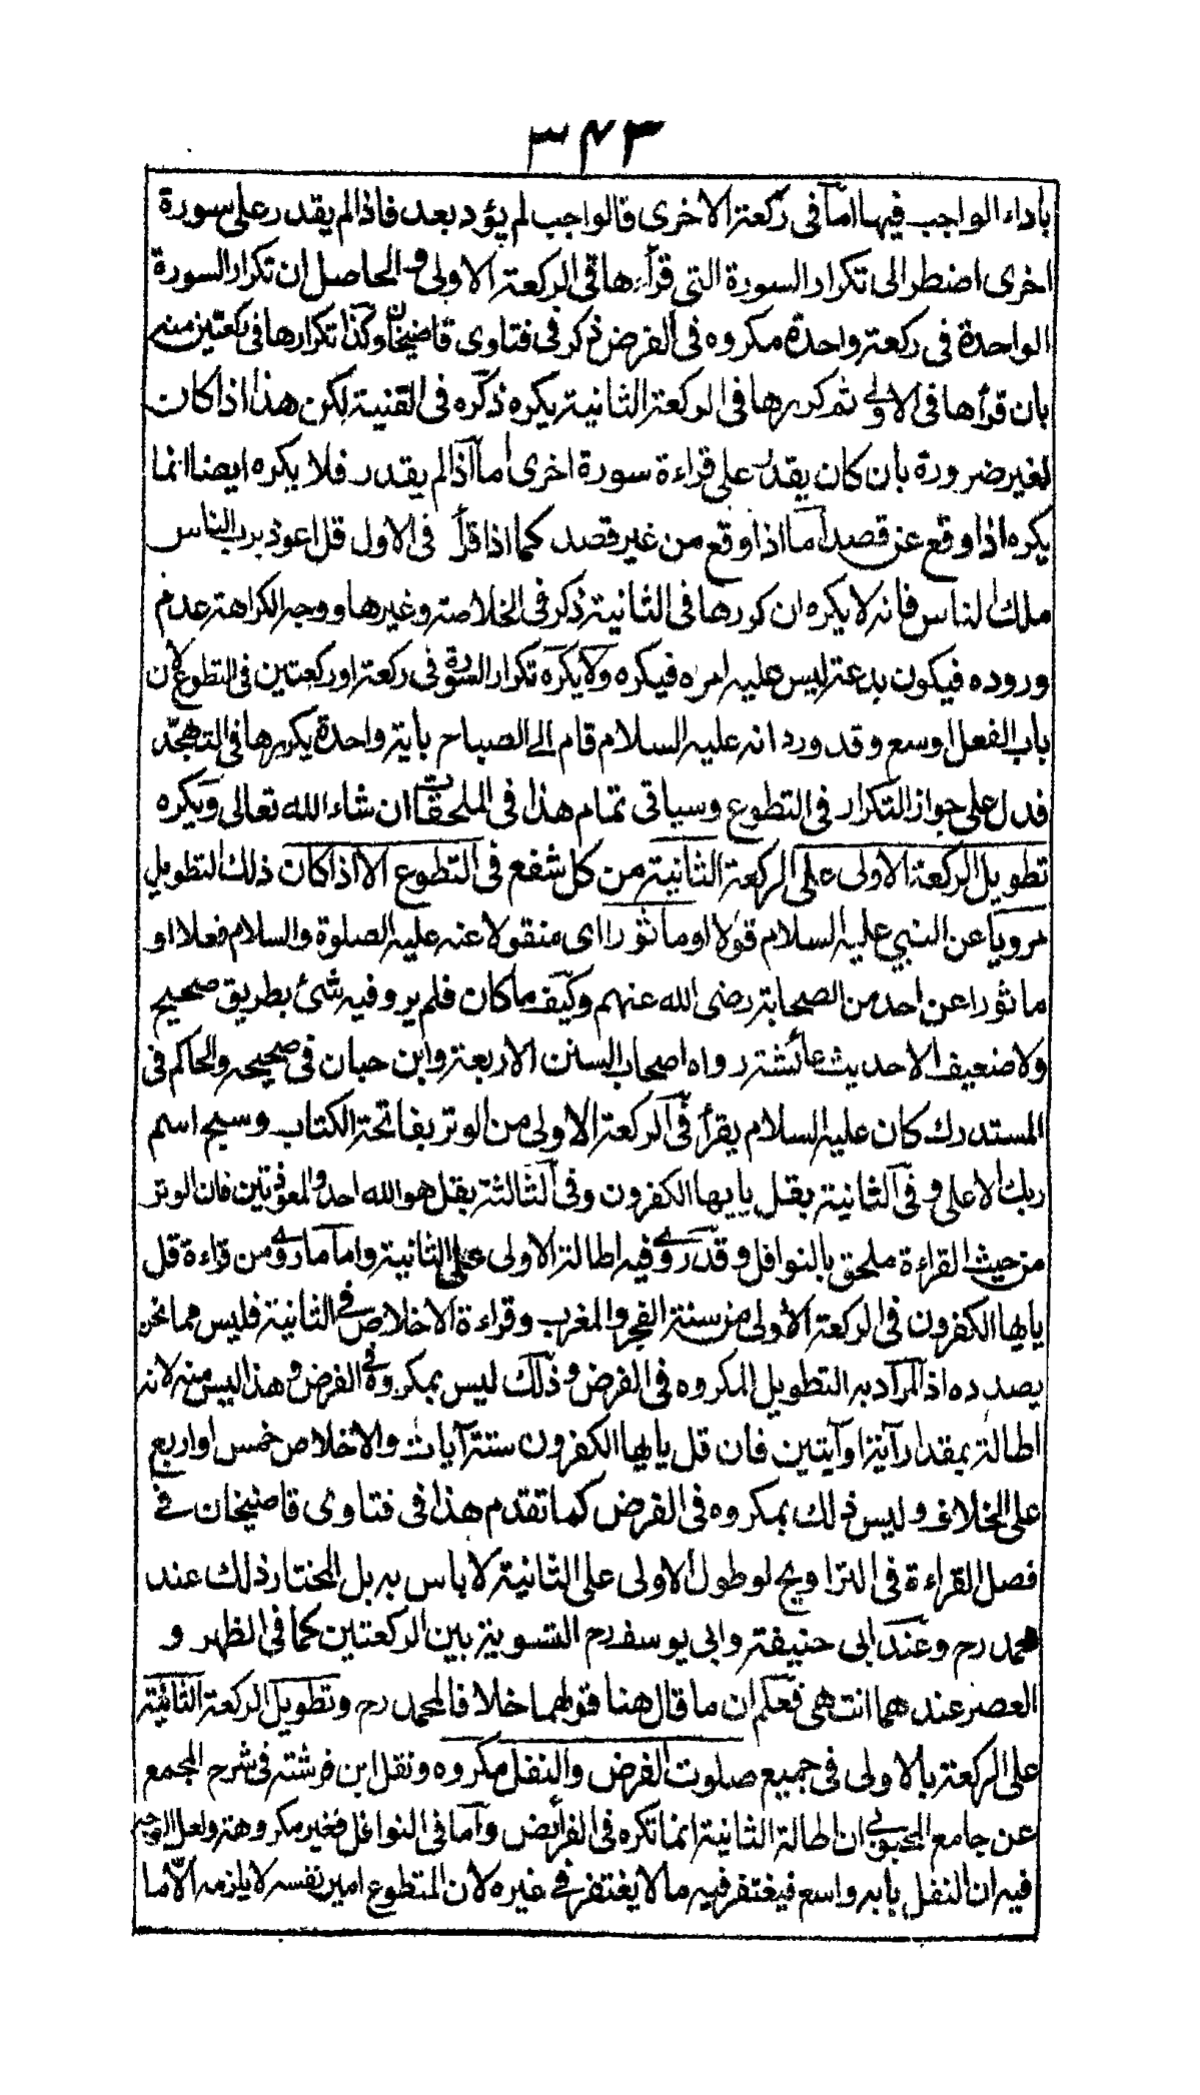 ٣٤٣
باداء الواجب فيها اما في ركعة الاخرى فالواجب لم يؤد بعد فاذا لم يقدر على سورة
اخرى اضطر الى تكرار السورة التي قرأها في الركعة الاولى والحاصل ان تكرار السورة
الواحدة في ركعة واحدة مكروه في الفرض ذكر في فتاوى قاضيخان وكذا تكرارها في ركعتين منه
بان قرأها في الاولى ثم كررها في الركعة الثانية يكره ذكره في القنية لكن هذا اذا كان
لغير ضرورة بان كان يقدر على قراءة سورة اخرى اما اذا لم يقدر فلا يكره ايضا انما
يكره اذا وقع عن قصد اما اذا وقع من غير قصد كما اذا قرأ في الاول قل اعوذ برب الناس
ملك الناس فانه لا يكره ان كررها في الثانية ذكر في الخلاصة وغيرها ووجه الكراهة عدم
وروده فيكون بدعة ليس عليه امره فيكره ولا يكره تكرار السورة في ركعة او ركعتين في التطوع لان
باب الفعل اوسع وقد ورد انه عليه السلام قام الى الصباح باية واحدة يكررها في التهجد
فدل على جواز التكرار في التطوع وسياتى تمام هذا في الملحقات ان شاء الله تعالى ويكره
تطويل الركعة الاولى على الركعة الثانية من كل شفع في التطوع الا اذا كان ذلك التطويل
مرويا عن النبي عليه السلام قولا او ماثورا اى منقولا عنه عليه الصلوة والسلام فعلا او
ماثورا عن احد من الصحابة رضى الله عنهم وكيف ما كان فلم يرو فيه شئ بطريق صحيح
ولا ضعيف الا حديث عائشة رواه اصحاب السنن الاربعة وابن حبان في صحيحه والحاكم في
المستدرك كان عليه السلام يقرأ في الركعة الاولى من الوتر بفاتحة الكتاب وسبح اسم
ربك الاعلى وفي الثانية بقل يايها الكفرون وفي الثالثة بقل هو الله احد والمعوذتين فان الوتر
من حيث القراءة ملحق بالنوافل وقد روى فيه اطالة الاولى على الثانية واما ما روى من قراءة قل
يايها الكفرون في الركعة الاولى من سنة الفجر والمغرب وقراءة الاخلاص في الثانية فليس مما نحن
بصدده اذ المراد به التطويل المكروه في الفرض وذلك ليس بمكروه في الفرض وهذا ليس منه لانه
اطالة بمقدار آية او آيتين فان قل يايها الكفرون ستة آيات والاخلاص خمس او اربع
على الخلاف وليس ذلك بمكروه في الفرض كما تقدم هذا في فتاوى قاضيخان في
فصل القراءة في التراويح لو طول الاولى على الثانية لا باس به بل المختار ذلك عند
محمد رح وعند ابى حنيفة وابى يوسف رح التسوية بين الركعتين كما في الظهر و
العصر عندهما انتهى فعلم ان ما قال هنا قولهما خلافا لمحمد رح وتطويل الركعة الثانية
على الركعة بالاولى في جميع صلوت الفرض والنفل مكروه ونقل ابن فرشته في شرح المجمع
عن جامع المحبوبى ان اطالة الثانية انما تكره في الفرائض واما في النوافل فغير مكروهة ولعل الوجه
فيه ان النفل بابه واسع فيغتفر فيه ما لا يغتفر في غيره لان المتطوع امير نفسه لا يلزمه الا ما